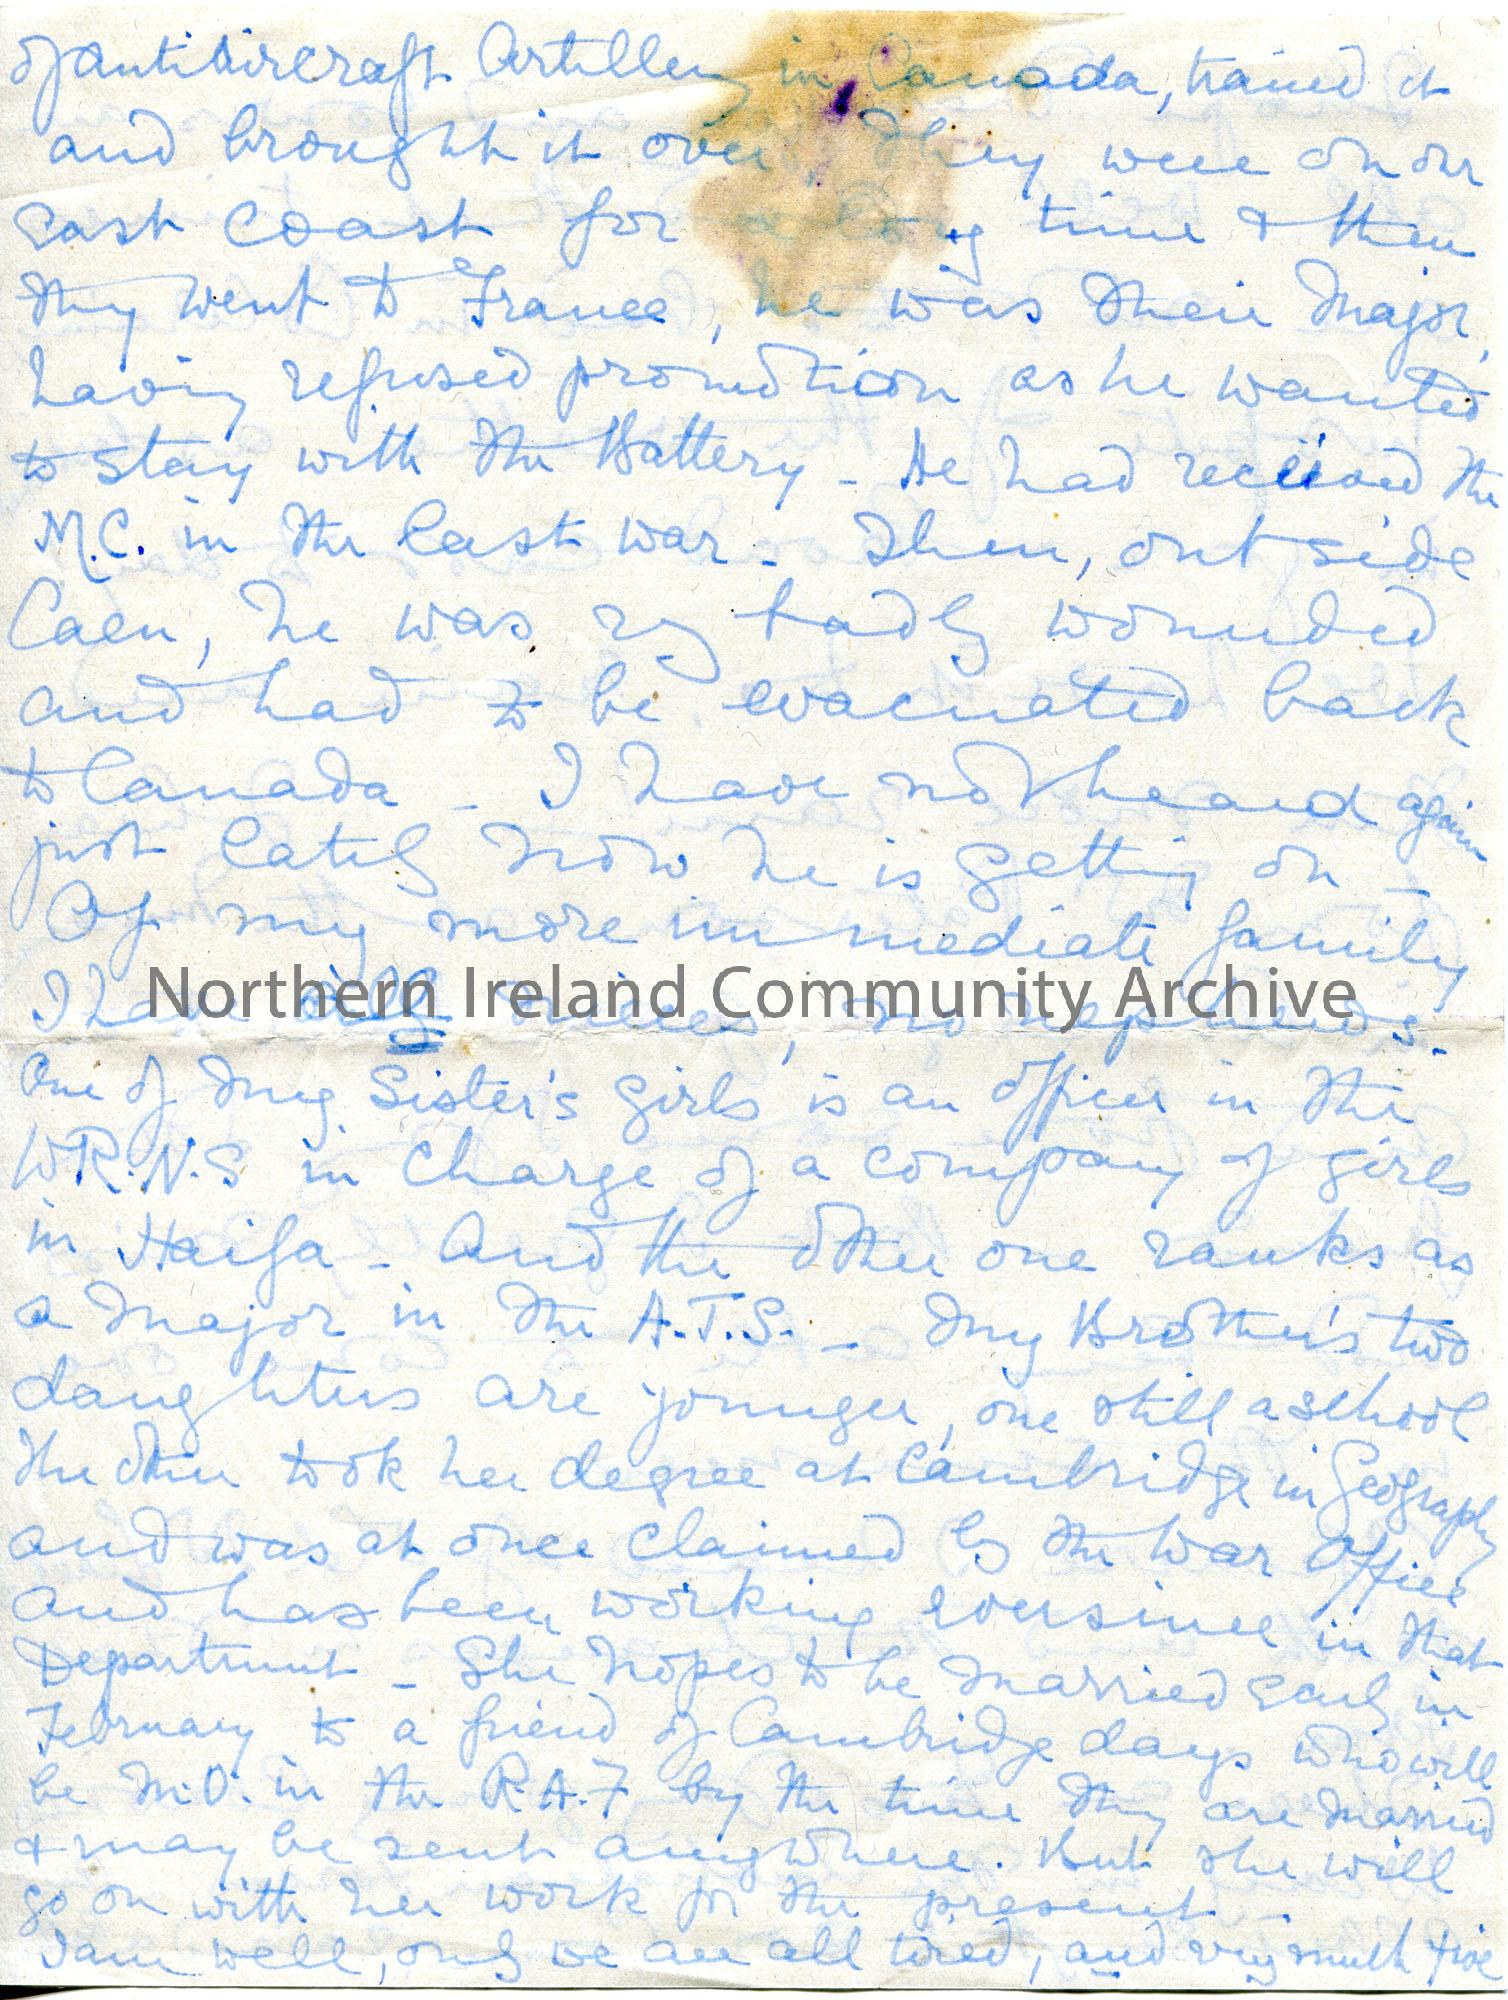 of antiaircraft Artillery in Canada, trained it
and brought it over. They were on our
East Coast for a long time & then
they went to France, he was their Major,
having refused promotion as he wanted
to stay with the Battery - He had received the
M.C. in the last war - Then, outside
Caen, he was vy badly wounded
and had to be evacuated back
to Canada - I have not heard again
just lately how he is getting on -
Of my more immediate family
I have only nieces, no nephews.
Northern Ireland Community Archive
One of my Sister's girls is an officer in the
W.R.N.S in charge of a company of girls
in Haifa - And the other one ranks as
a Major in the A.T.S. - My Brother's two
daughters are younger, one still a school
the other took her degree at Cambridge in Geography
and was at once claimed by the War Office
and has been working ever since in that
Department - She hopes to be married early in
February to a friend of Cambridge days who will
be M.O. in the R.A.F by the time they are married
& may be sent anywhere. But she will
go on with her work for the present -
I am well, only we are all tired, and very much